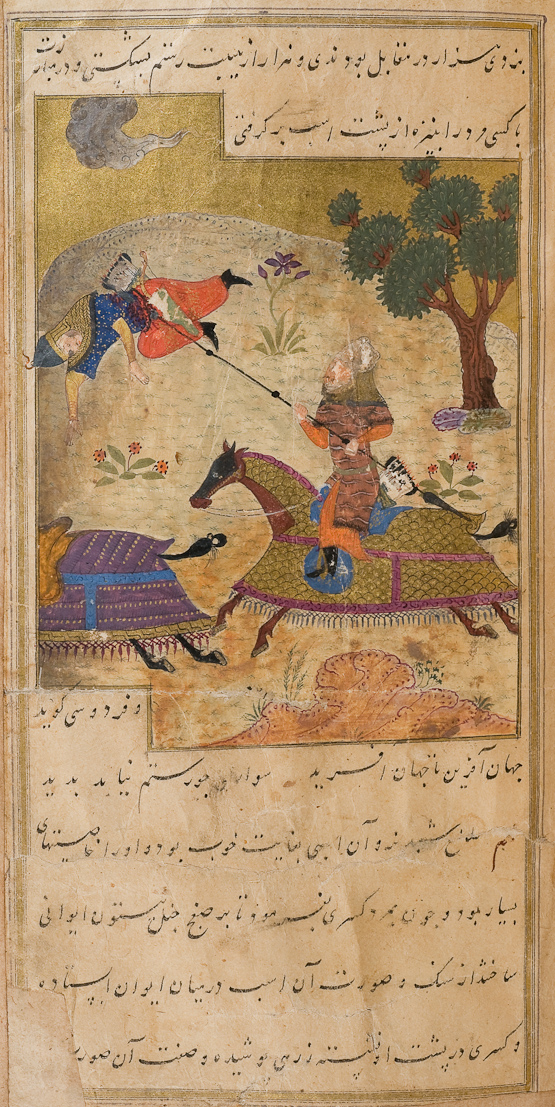 بزدی هزار در مقابل بودندی و هزار از هیبت رستم بشکستی و در مبارزت
با کسی مرد را بنیزه از پشت اسب برگرفتی
و فردوسی گوید
جهان آفرین تا جهان آفرید سواری چو رستم نیامد بدید
و آن اسبی بغایت خوب بود و او را خاصیتهای
بسیار بود و چون بمرد کسری بفرمود تا بر صنج جبل بیستون ایوانی
ساختند از سنگ و صورت آن اسب در میان ایوان ایستاده
و کسری در پشت او نشسته زرهی پوشیده و صفت آن صورت